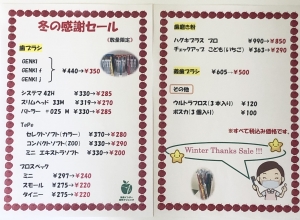 冬の感謝セール
(数量限定)
歯ブラシ
GENKI
GENKI f ¥440→¥350
GENKI j
システマ 42H ¥330→¥285
スリムヘッド 33M ¥319→¥270
バトラー #025 M ¥330→¥285
TePe
セレクトソフト(カラー) ¥370→¥280
コンパクトソフト(ZOO) ¥330→¥290
ミニ エキストラソフト ¥330→¥200
プロスペック
ミニ ¥297→¥240
スモール ¥275→¥220
タイニー ¥275→¥220
歯磨き粉
ハグキプラス プロ ¥990→¥850
チェックアップ こども(いちご) ¥363→¥290
義歯ブラシ ¥605→¥500
その他
ウルトラフロス(3本入り) ¥120
ポスカ(3個) ¥100
*すべて税込み価格です。
Winter Thanks Sale !!!